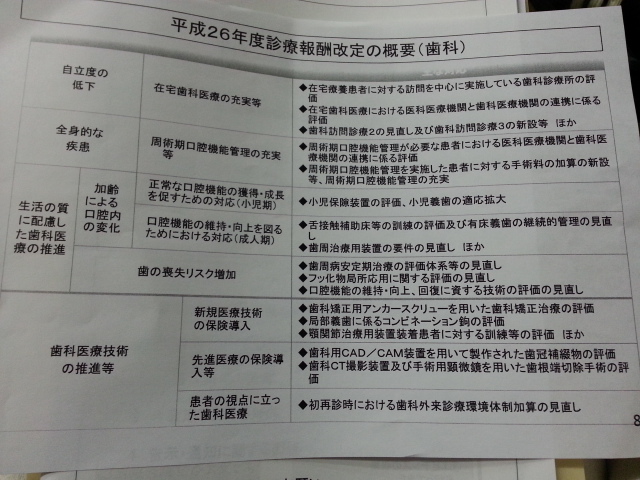 平成26年度診療報酬改定の概要(歯科)
自立度の
低下
在宅歯科医療の充実等
◆在宅療養患者に対する訪問を中心に実施している歯科診療所の評
価
◆在宅歯科医療における医科医療機関と歯科医療機関の連携に係る
評価
◆歯科訪問診療2の見直し及び歯科訪問診療3の新設等 ほか
全身的な
疾患
周術期口腔機能管理の充実
等
◆周術期口腔機能管理が必要な患者における医科医療機関と歯科医
療機関の連携に係る評価
◆周術期口腔機能管理を実施した患者に対する手術料の加算の新設
等、周術期口腔機能管理の充実
生活の質
に配慮し
た歯科医
療の推進
加齢
による
口腔内
の変化
正常な口腔機能の獲得・成長
を促すための対応(小児期)
◆小児保隙装置の評価、小児義歯の適応拡大
口腔機能の維持・向上を図る
ためにおける対応(成人期)
◆舌接触補助床等の訓練の評価及び有床義歯の継続的管理の見直
し
◆歯周治療用装置の要件の見直し ほか
歯の喪失リスク増加
◆歯周病安定期治療の評価体系等の見直し
◆フッ化物局所応用に関する評価の見直し
◆口腔機能の維持・向上、回復に資する技術の評価の見直し
歯科医療技術
の推進等
新規医療技術
の保険導入
◆歯科矯正用アンカースクリューを用いた歯科矯正治療の評価
◆局部義歯に係るコンビネーション鉤の評価
◆顎関節治療用装置装着患者に対する訓練等の評価 ほか
先進医療の保険導
入等
◆歯科用CAD/CAM装置を用いて製作された歯冠補綴物の評価
◆歯科CT撮影装置及び手術用顕微鏡を用いた歯根端切除手術の評
価
患者の視点に立っ
た歯科医療
◆初再診時における歯科外来診療環境体制加算の見直し
8